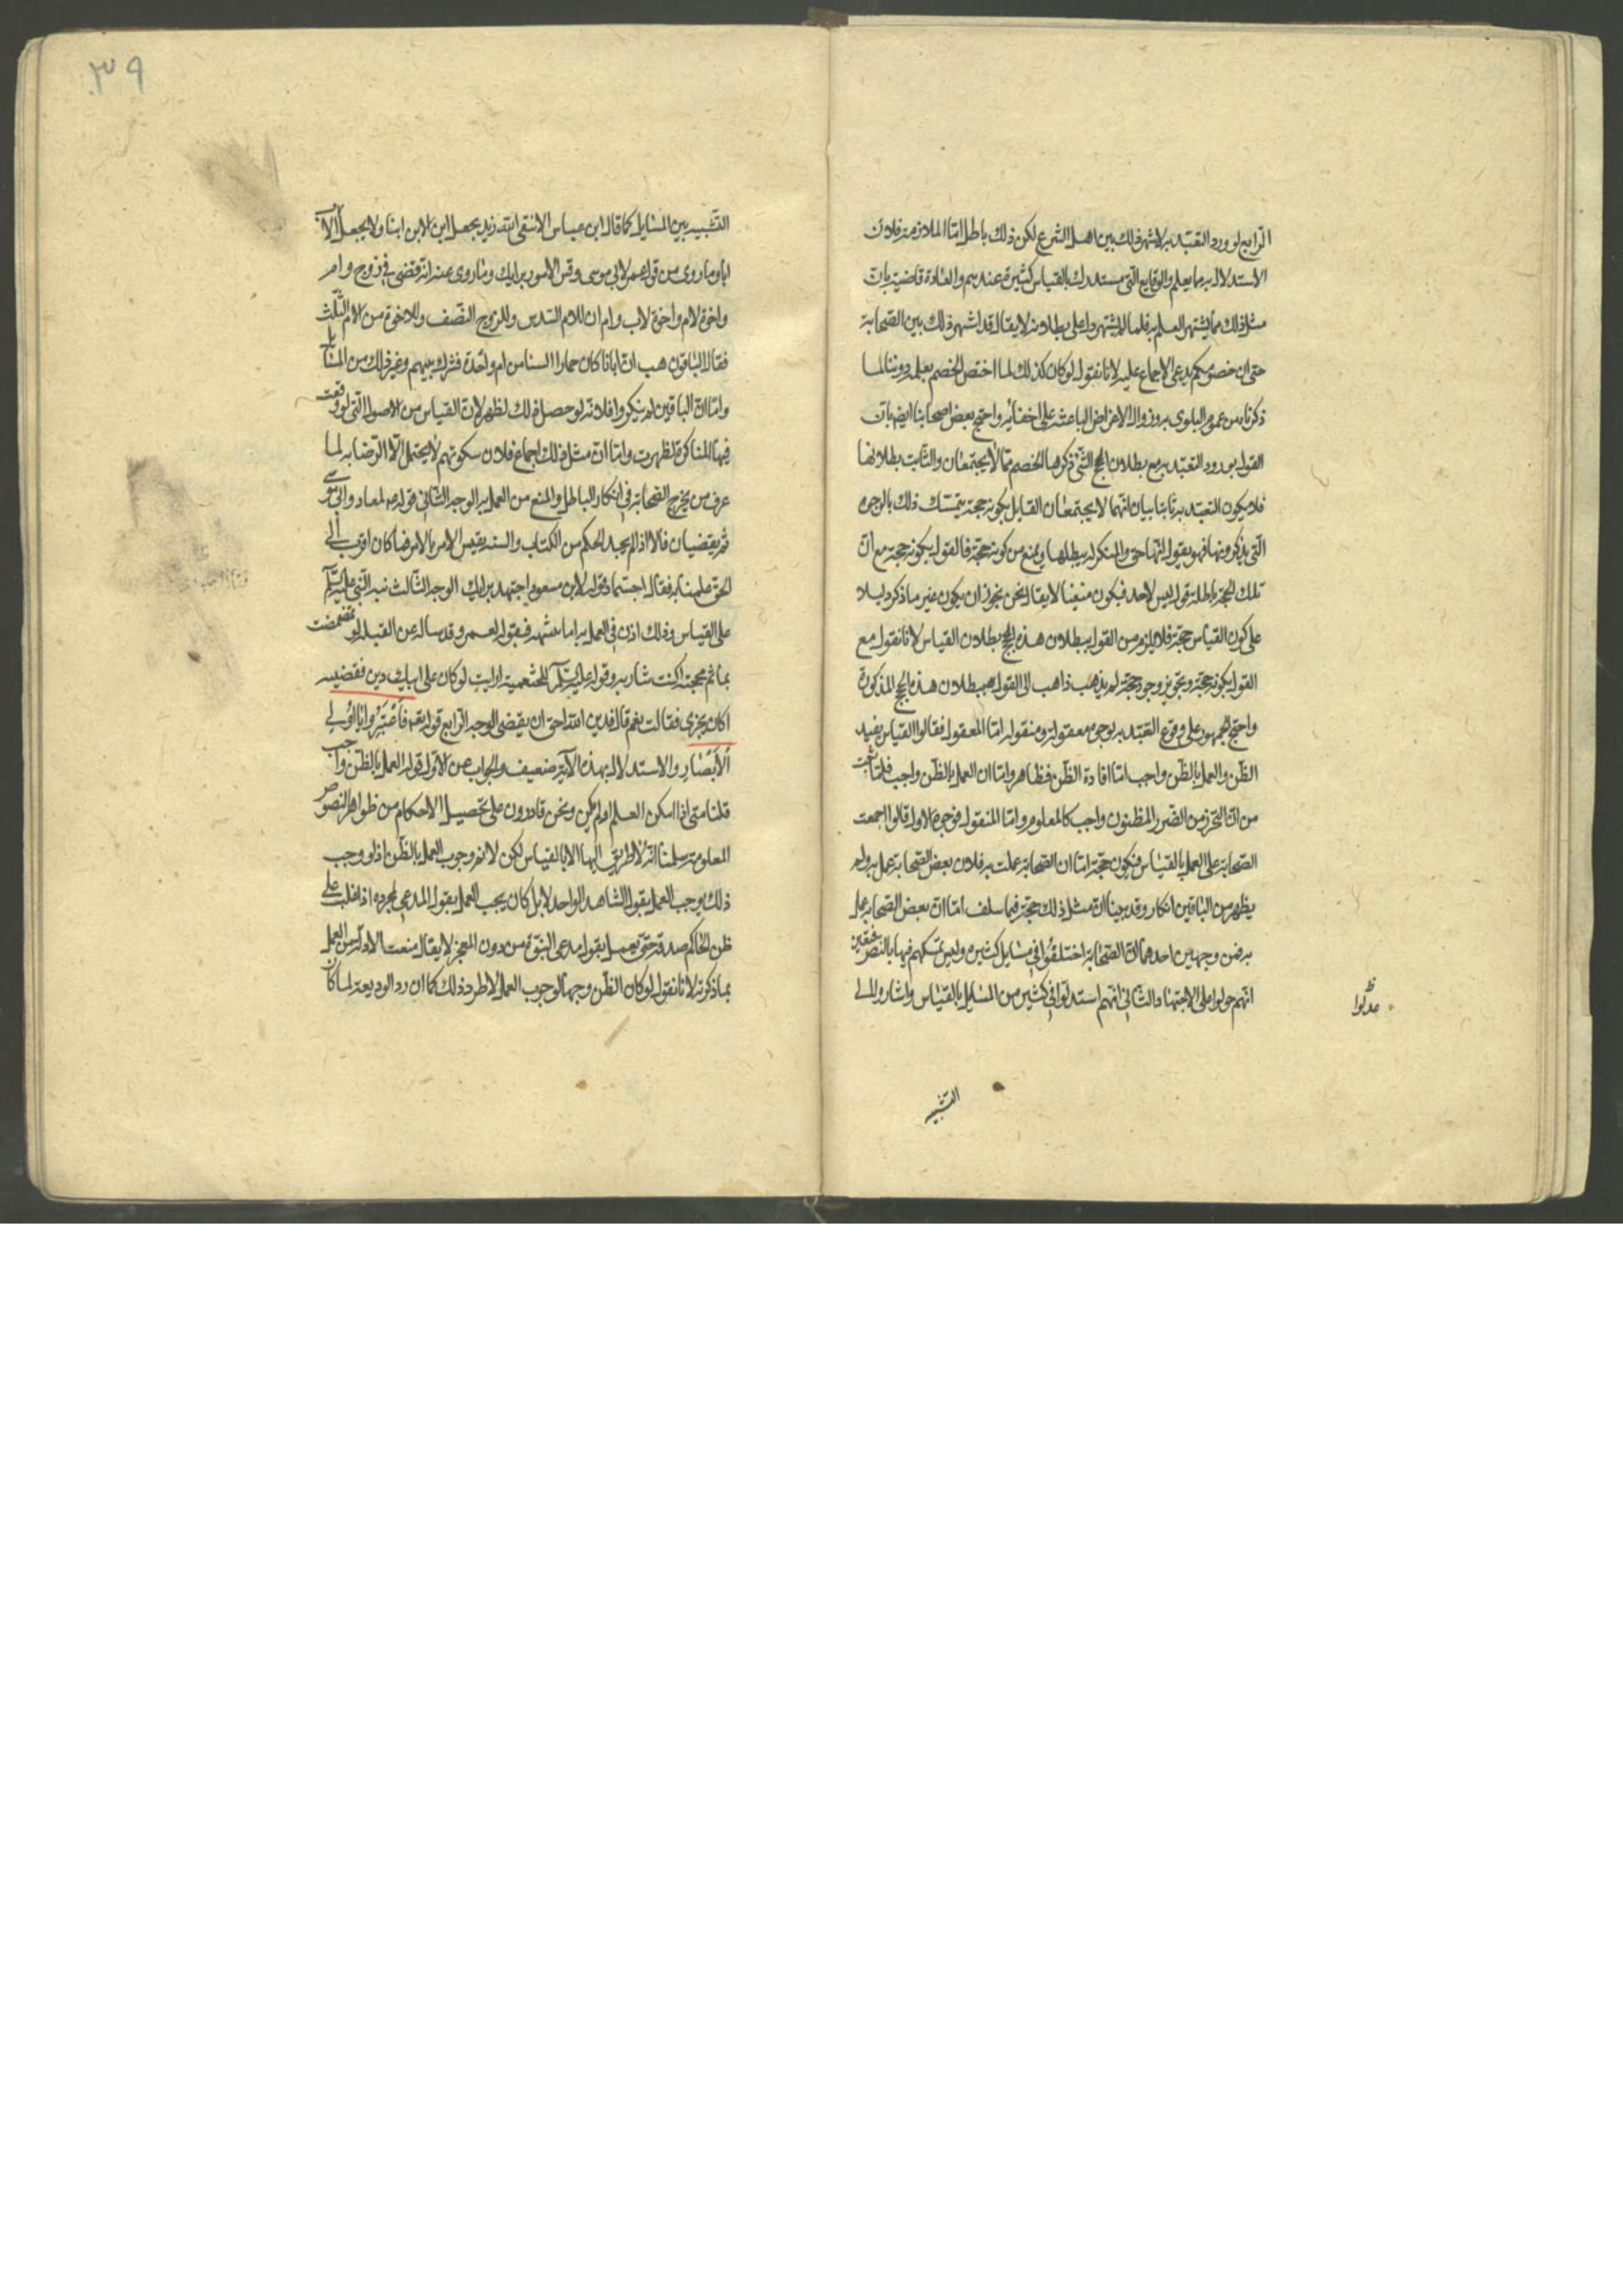 الرابع لو ورد التعبد به لاشتهر ذلك بين اهل الشرع لكن ذلك باطل اما الملازمة فلان
الاستدلال به مما يعلم والوقايع التى مستدرك بالقياس كثيرة عندهم والعادة قاضية بان
مثل ذلك مما يشتهر العلم به فلما لم يشتهر دل على بطلانه لا يقال قد اشتهر ذلك بين الصحابة
حتى ان خصومكم يدعى الاجماع عليه لانا نقول لو كان كذلك لما اختص الخصم بعلمه دوننا لما
ذكرناه من عموم البلوى به وزوال الاغراض الباعثة على اخفائه واحتج بعض اصحابنا ايضا بان
القول بورود التعبد به مع بطلان الحجج التى ذكرها الخصم مما لا يجتمعان والثابت بطلانها
فلا يكون التعبد به ثابتا بيان انهما لا يجتمعان القايل بكونه حجة يتمسك ذلك بالوجوه
التى يذكرونها فهو يقول انها حق والمنكر له يبطلها ويمنع من كونه حجة فالقول بكونه حجة مع ان
تلك الحجة باطلة قول ليس لاحد فيكون منفيا لا يقال نحن نجوز ان يكون غير ما ذكر دليلا
على كون القياس حجة فلا يلزم من القول ببطلان هذه الحجج بطلان القياس لانا نقول مع
القول بكونه حجة وتجويز وجود حجة لم يذهب ذاهب الى القول به ببطلان هذه الحجج المذكورة
واحتج الجمهور على وقوع التعبد به بوجوه معقولة ومنقولة اما المعقول فقالوا القياس يفيد
الظن والعمل بالظن واجب اما افادة الظن فظاهر واما ان العمل بالظن واجب فلما ثبت
من ان التحرز من الضرر المظنون واجب كالمعلوم واما المنقول فوجوه الاول قالوا اجمعت
الصحابة على العمل بالقياس فيكون حجة اما ان الصحابة عملت به فلان بعض الصحابة عمل به ولم
يظهر من الباقين انكار وقد بينا ان مثل ذلك حجة فيما سلف اما ان بعض الصحابة عمل
به فمن وجهين احدهما ان الصحابة اختلفوا فى مسايل كثيرة وليس تمسكهم فيها بالنص فتعين
انهم عولوا على الاجتهاد والثانى انهم استدلوا فى كثير من المسايل بالقياس واشاروا الى
عدلوا
التشبيه
٣٩
التشبيه بين المسايل كما قال ابن عباس الا يتقى الله زيد يجعل ابن الابن ابنا ولا يجعل اب الاب
ابا وما روى من قول عمر لابى موسى وقس الامور برايك وما روى عنه انه قضى فى زوج وام
واخوة لام واخوة لاب وام ان للام السدس وللزوج النصف وللاخوة من الام الثلث
فقال الباقون هب ان ابانا كان حمارا السنا من ام واحدة فشرك بينهم وغير ذلك من المسايل
واما ان الباقين لم ينكروا فلانه لو حصل ذلك لظهر لان القياس من الاصول التى لو وقعت
فيها المناكرة لظهرت واما ان مثل ذلك اجماع فلان سكوتهم لا يحتمل الا الرضا به لما
عرف من يخرج الصحابة فى انكار الباطل والمنع من العمل به الوجه الثانى قوله ص لمعاد وابى موسى
ثم يقضيان فالا اذا لم يجد الحكم من الكتاب والسنة يقيس الامر بالامر فما كان اقرب الى
الحق عملنا به فقال اجتمادة وقوله لابن مسعود اجتهد برايك الوجه الثالث نبه النبى عليه السلم
على القياس وذلك اذن فى العمل به اما تنبهه فبقوله لعمر وقد ساله عن القبلة لو تمضمضت
بماء ثم مججته اكنت شاربه وقوله عليه السلم للخثعمية ارايت لو كان على ابيك دين فقضيته
اكان يجزى فقالت نعم قال فدين الله احق ان يقضى الوجه الرابع قوله تعه فَاعْتَبِرُوا يَا اُولِي
الْاَبْصَارِ والاستدلال بهذه الآية ضعيف والجواب عن الاول قوله العمل بالظن واجب
قلنا متى اذا امكن العلم او لم يكن ونحن قادرون على تحصيل الاحكام من ظواهر النصوص
المعلومة سلمنا انه لا طريق اليها الا بالقياس لكن لا نم وجوب العمل بالظن اذ لو وجب
ذلك لوجب العمل بقول الشاهد الواحد لا بل كان يجب العمل بقول المدعى بمجرده اذا غلب على
ظن الحاكم صدقه حتى يعمل بقول مدعى النبوة من دون المعجز لا يقال منعت الادلة من العمل
بما ذكرته لانا نقول لو كان الظن وجها لوجوب العمل لاطرد ذلك كما ان رد الوديعة لما كان